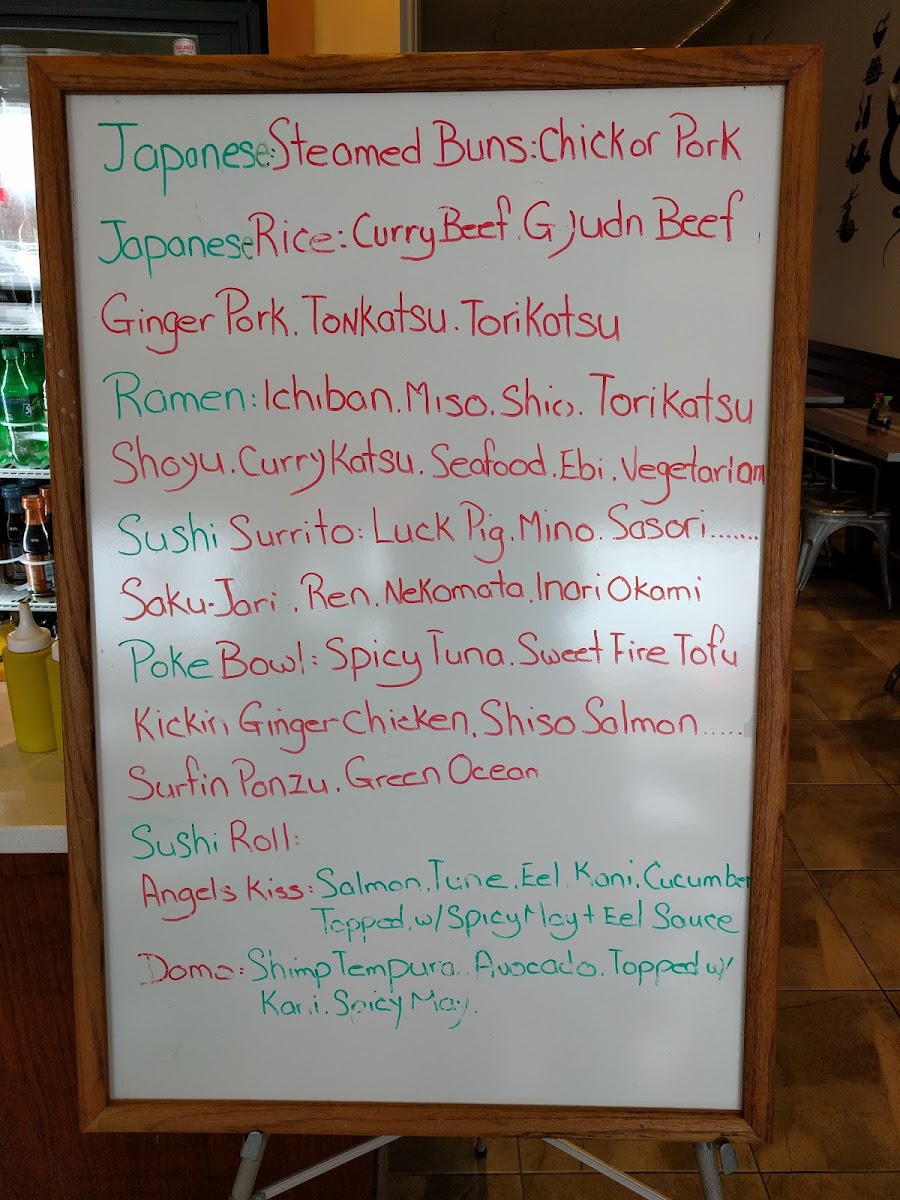 Japanese:Steamed Buns:Chick or Pork
Japanese Rice: Curry Beef. Gyudn Beef
Ginger Pork. Tonkatsu. Torikatsu
Ramen: Ichiban. Miso. Shio. Torikatsu
Shoyu. Curry Katsu. Seafood. Ebi. Vegetarian
Sushi Surrito: Luck Pig. Mino. Sasori.......
Saku-Jari. Ren. Nekomata. Inari Okami
Poke Bowl: Spicy Tuna. Sweet Fire Tofu
Kickin Ginger Chicken. Shiso Salmon.....
Surfin Ponzu. Green Ocean
Sushi Roll:
Angels Kiss: Salmon. Tune. Eel. Kani. Cucumber
Topped. w/ Spicy May + Eel Sauce
Domo: Shimp Tempura. Avocado. Topped w/
Kani. Spicy May.